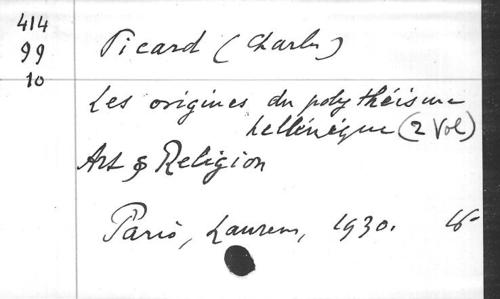 414
99
10
Picard (Charles)
Les origines du polythéisme
hellénique (2 Vol)
Art & Religion
Paris, Laurens, 1930.